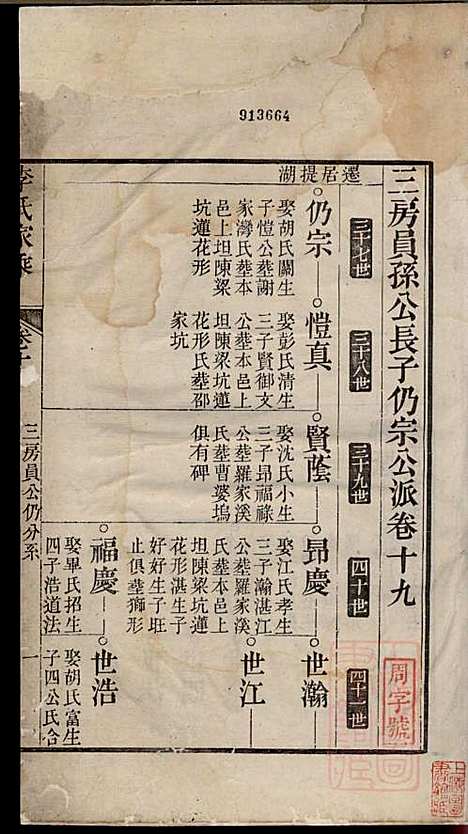 913664
三房員孫公長子仍宗公派卷十九
周字號
三十七世
三十八世
三十九世
四十世
四十一世
遷居提湖
仍宗
娶胡氏關生
子愷公塟謝
家灣氏塟本
邑上坦陳梁
坑蓮花形
愷真
娶彭氏清生
三子賢御文
公塟本邑上
坦陳梁坑蓮
花形氏塟邵
家坑
賢蔭
娶沈氏小生
三子昻福祿
公塟羅家溪
氏塟曹婆塢
俱有碑
昻慶
娶江氏孝生
三子瀚湛江
公塟羅家溪
氏塟本邑上
坦陳梁坑蓮
花形湛生子
好好生子旺
止俱塟獅形
世瀚
世江
福慶
娶畢氏招生
四子浩道法
世浩
娶胡氏富生
子四公氏合
李氏家乘
卷十
三房員公仍分系
一